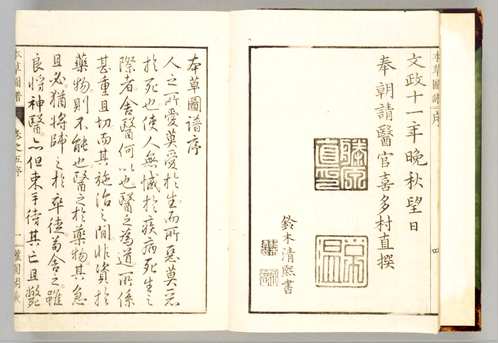 本草圖譜序
四
文政十一年晚秋望日
奉 朝請醫官喜多村直撰
鈴木清熈書
本草圖譜序
人之所愛莫愛於生而所惡莫惡
於死也使人無憾於疾病死生之
際者舍醫何以也醫之為道所係
甚重且切而其施治之間非資於
藥物則不能也醫之於藥物其急
且必猶将帥之於卒徒苟舍之雖
良将神醫亦但束手待其亡且斃
本草圖譜
卷之五序
一